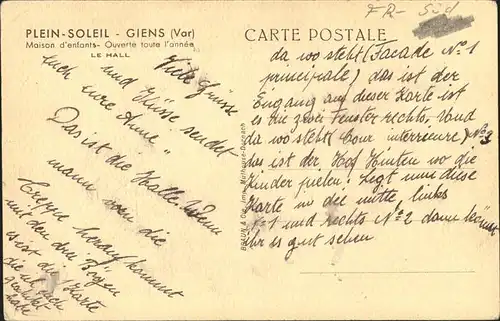 FR- Süd
PLEIN-SOLEIL - GIENS (Var)
Maison d'enfants- Ouverte toute l'année
LE HALL
CARTE POSTALE
Viele Grüsse
und Küsse sendet
euch eure Anne"
Das ist die Halle. Wenn
mann von die
Treppe herauf kommt
mit den drei Bögen
es ist die Karte
die ich euch
habe
da wo steht (Facade No 1
principiale) das ist der
Eingang auf dieser Karte ist
es die zwei Fenster rechts. Und
da wo steht (Cour interieure) No 3
das ist der Hof Hinten wo die
Kinder spielen. Legt nune diese
Karte in die mitte, links
No 1 und rechts No 2 dann könnt
Ihr es gut sehen
BRAUN & Cie, Imp. Mulhouse-Dornach